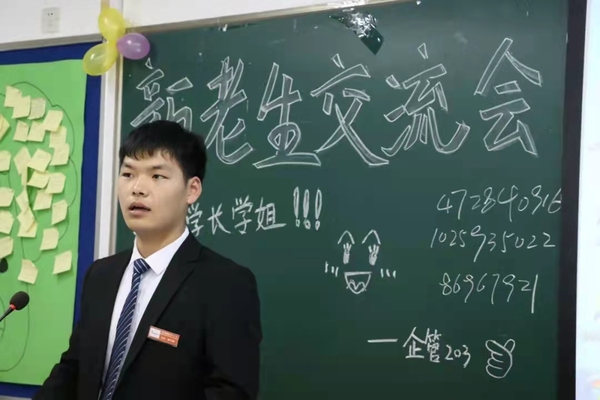 新老生交流会
学长学姐!!!
472840916
1025935022
86967921
—企管203